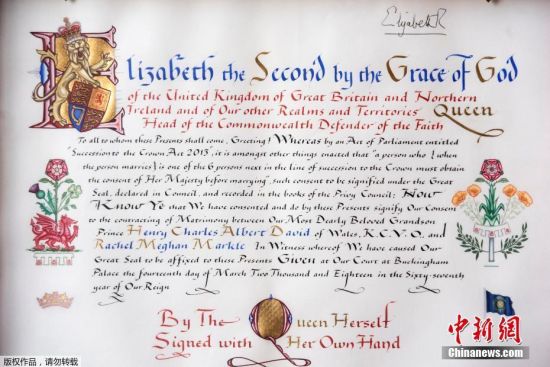 Elizabeth R
Elizabeth the Second by the Grace of God
of the United Kingdom of Great Britain and Northern
Ireland and of Our other Realms and Territories Queen
Head of the Commonwealth Defender of the Faith
To all to whom these Presents shall come, Greeting! Whereas by an Act of Parliament entitled
"Succession to the Crown Act 2013", it is amongst other things enacted that "a person who (when
the person marries) is one of the 6 persons next in the line of succession to the Crown must obtain
the consent of Her Majesty before marrying", such consent to be signified under the Great
Seal, declared in Council, and recorded in the books of the Privy Council; Now
Know Ye that We have consented and do by these Presents signify Our Consent
to the contracting of Matrimony between Our Most Dearly Beloved Grandson
Prince Henry Charles Albert David of Wales, K.C.V.O., and
Rachel Meghan Markle In Witness whereof We have caused Our
Great Seal to be affixed to these Presents Given at Our Court at Buckingham
Palace the fourteenth day of March Two Thousand and Eighteen in the Sixty-seventh
year of Our Reign
By The Queen Herself
Signed with Her Own Hand
版权作品，请勿转载
中新网
Chinanews.com